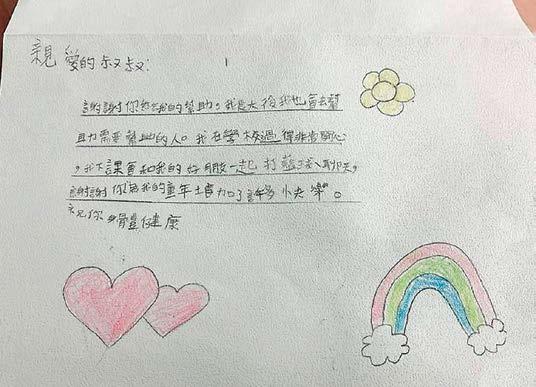 親愛的叔叔:
謝謝你給我的幫助。我長大後我也會去幫
助需要幫助的人。我在學校過得非常開心
,我下課會和我的好朋友一起打籃球、聊天,
謝謝你為我的童年增加了許多快樂。
祝你身體健康